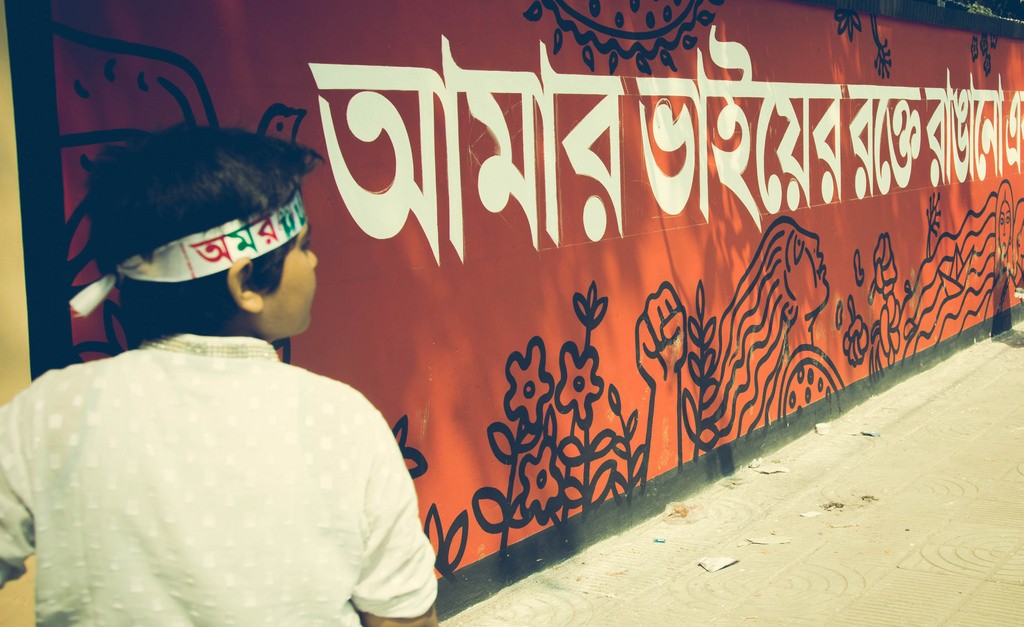 আমার ভাইয়ের রক্তে রাঙানো এ
অমর